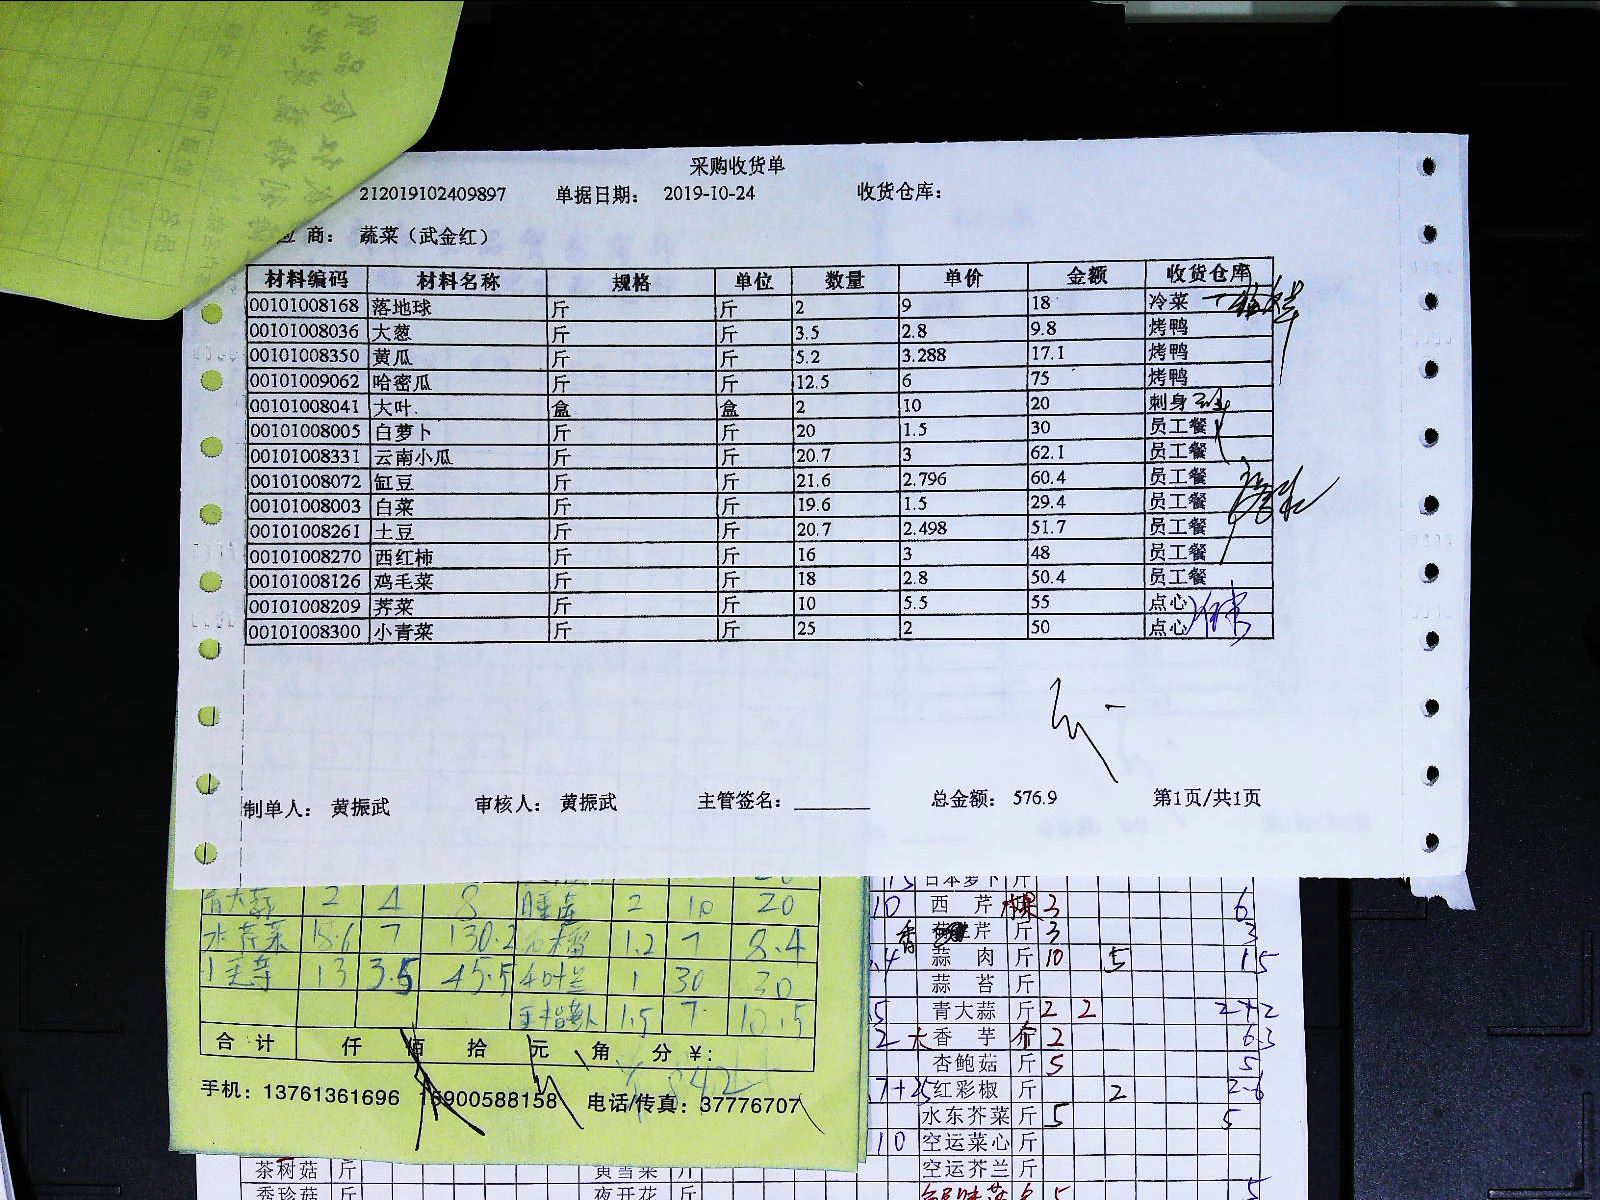 采购收货单
212019102409897 单据日期: 2019-10-24 收货仓库:
应 商: 蔬菜（武金红）
材料编码 材料名称 规格 单位 数量 单价 金额 收货仓库
00101008168 落地球 斤 斤 2 9 18 冷菜
00101008036 大葱 斤 斤 3.5 2.8 9.8 烤鸭
00101008350 黄瓜 斤 斤 5.2 3.288 17.1 烤鸭
00101009062 哈密瓜 斤 斤 12.5 6 75 烤鸭
00101008041 大叶 盒 盒 2 10 20 刺身
00101008005 白萝卜 斤 斤 20 1.5 30 员工餐
00101008331 云南小瓜 斤 斤 20.7 3 62.1 员工餐
00101008072 缸豆 斤 斤 21.6 2.796 60.4 员工餐
00101008003 白菜 斤 斤 19.6 1.5 29.4 员工餐
00101008261 土豆 斤 斤 20.7 2.498 51.7 员工餐
00101008270 西红柿 斤 斤 16 3 48 员工餐
00101008126 鸡毛菜 斤 斤 18 2.8 50.4 员工餐
00101008209 荠菜 斤 斤 10 5.5 55 点心
00101008300 小青菜 斤 斤 25 2 50 点心
制单人: 黄振武 审核人: 黄振武 主管签名: 总金额: 576.9 第1页/共1页
青大蒜 2 4 8 2 10 20
水芹菜 18.6 7 130.2 石榴 1.2 7 8.4
13 3.5 45.5 1 30 30
1.5 7 10.5
合计 仟 佰 拾 元 角 分 ¥:
手机: 13761361696 18900588158 电话/传真: 37776707
日本萝卜 斤
10 西芹 3 6
香芹 斤 3 3
蒜肉 斤 10 5 15
蒜苔 斤
青大蒜 斤 2 2 2+2
大香芋 2 6.3
杏鲍菇 斤 5 5
7+25 红彩椒 斤 2 2-6
水东芥菜 斤 5 5
10 空运菜心 斤
空运芥兰 斤
茶树菇 斤 黄雪菜 斤
秀珍菇 斤 夜开花 斤